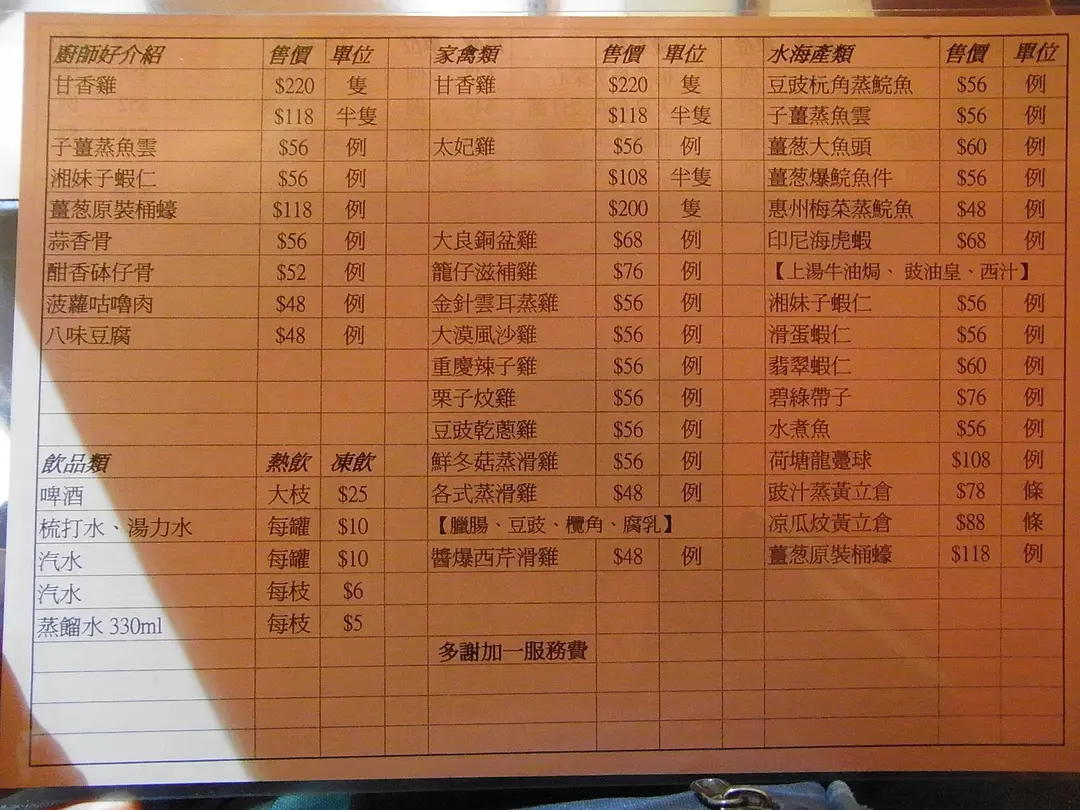 廚師好介紹 售價 單位
甘香雞 $220 隻
$118 半隻
子薑蒸魚雲 $56 例
湘妹子蝦仁 $56 例
薑葱原裝桶蠔 $118 例
蒜香骨 $56 例
酣香砵仔骨 $52 例
菠蘿咕嚕肉 $48 例
八味豆腐 $48 例
飲品類 熱飲 凍飲
啤酒 大枝 $25
梳打水、湯力水 每罐 $10
汽水 每罐 $10
汽水 每枝 $6
蒸餾水 330ml 每枝 $5
家禽類 售價 單位
甘香雞 $220 隻
$118 半隻
太妃雞 $56 例
$108 半隻
$200 隻
大良銅盆雞 $68 例
籠仔滋補雞 $76 例
金針雲耳蒸雞 $56 例
大漠風沙雞 $56 例
重慶辣子雞 $56 例
栗子炆雞 $56 例
豆豉乾蔥雞 $56 例
鮮冬菇蒸滑雞 $56 例
各式蒸滑雞 $48 例
【臘腸、豆豉、欖角、腐乳】
醬爆西芹滑雞 $48 例
多謝加一服務費
水海產類 售價 單位
豆豉杬角蒸鯇魚 $56 例
子薑蒸魚雲 $56 例
薑葱大魚頭 $60 例
薑葱爆鯇魚件 $56 例
惠州梅菜蒸鯇魚 $48 例
印尼海虎蝦 $68 例
【上湯牛油焗、豉油皇、西汁】
湘妹子蝦仁 $56 例
滑蛋蝦仁 $56 例
翡翠蝦仁 $60 例
碧綠帶子 $76 例
水煮魚 $56 例
荷塘龍躉球 $108 例
豉汁蒸黃立倉 $78 條
凉瓜炆黃立倉 $88 條
薑葱原裝桶蠔 $118 例